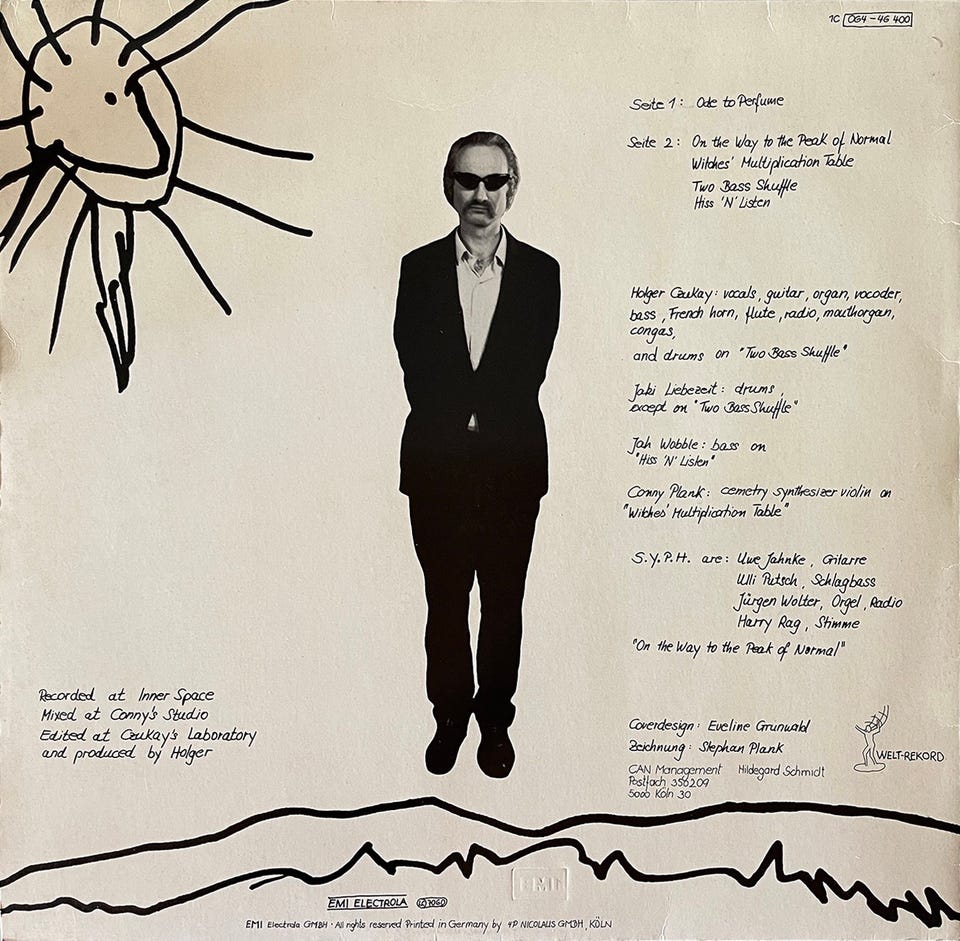 1C 064-46 400
Seite 1: Ode to Perfume
Seite 2: On the Way to the Peak of Normal
Witches' Multiplication Table
Two Bass Shuffle
Hiss 'N' Listen
Holger Czukay: vocals, guitar, organ, vocoder,
bass, French horn, flute, radio, mouthorgan,
congas,
and drums on "Two Bass Shuffle"
Jaki Liebezeit: drums,
except on "Two Bass Shuffle"
Jah Wobble: bass on
"Hiss 'N' Listen"
Conny Plank: cemetry synthesizer violin on
"Witches' Multiplication Table"
S.Y.P.H. are: Uwe Jahnke, Gitarre
Ulli Putsch, Schlagbass
Jürgen Wolter, Orgel, Radio
Harry Rag, Stimme
"On the Way to the Peak of Normal"
Recorded at Inner Space
Mixed at Conny's Studio
Edited at Czukay's Laboratory
and produced by Holger
Coverdesign: Eveline Grunwald
Zeichnung: Stephan Plank
CAN Management Hildegard Schmidt
Postfach 356209
5000 Köln 30
WELT-REKORD
EMI
EMI ELECTROLA
EMI Electrola GMBH · All rights reserved Printed in Germany by 4P NICOLAUS GMBH, KÖLN